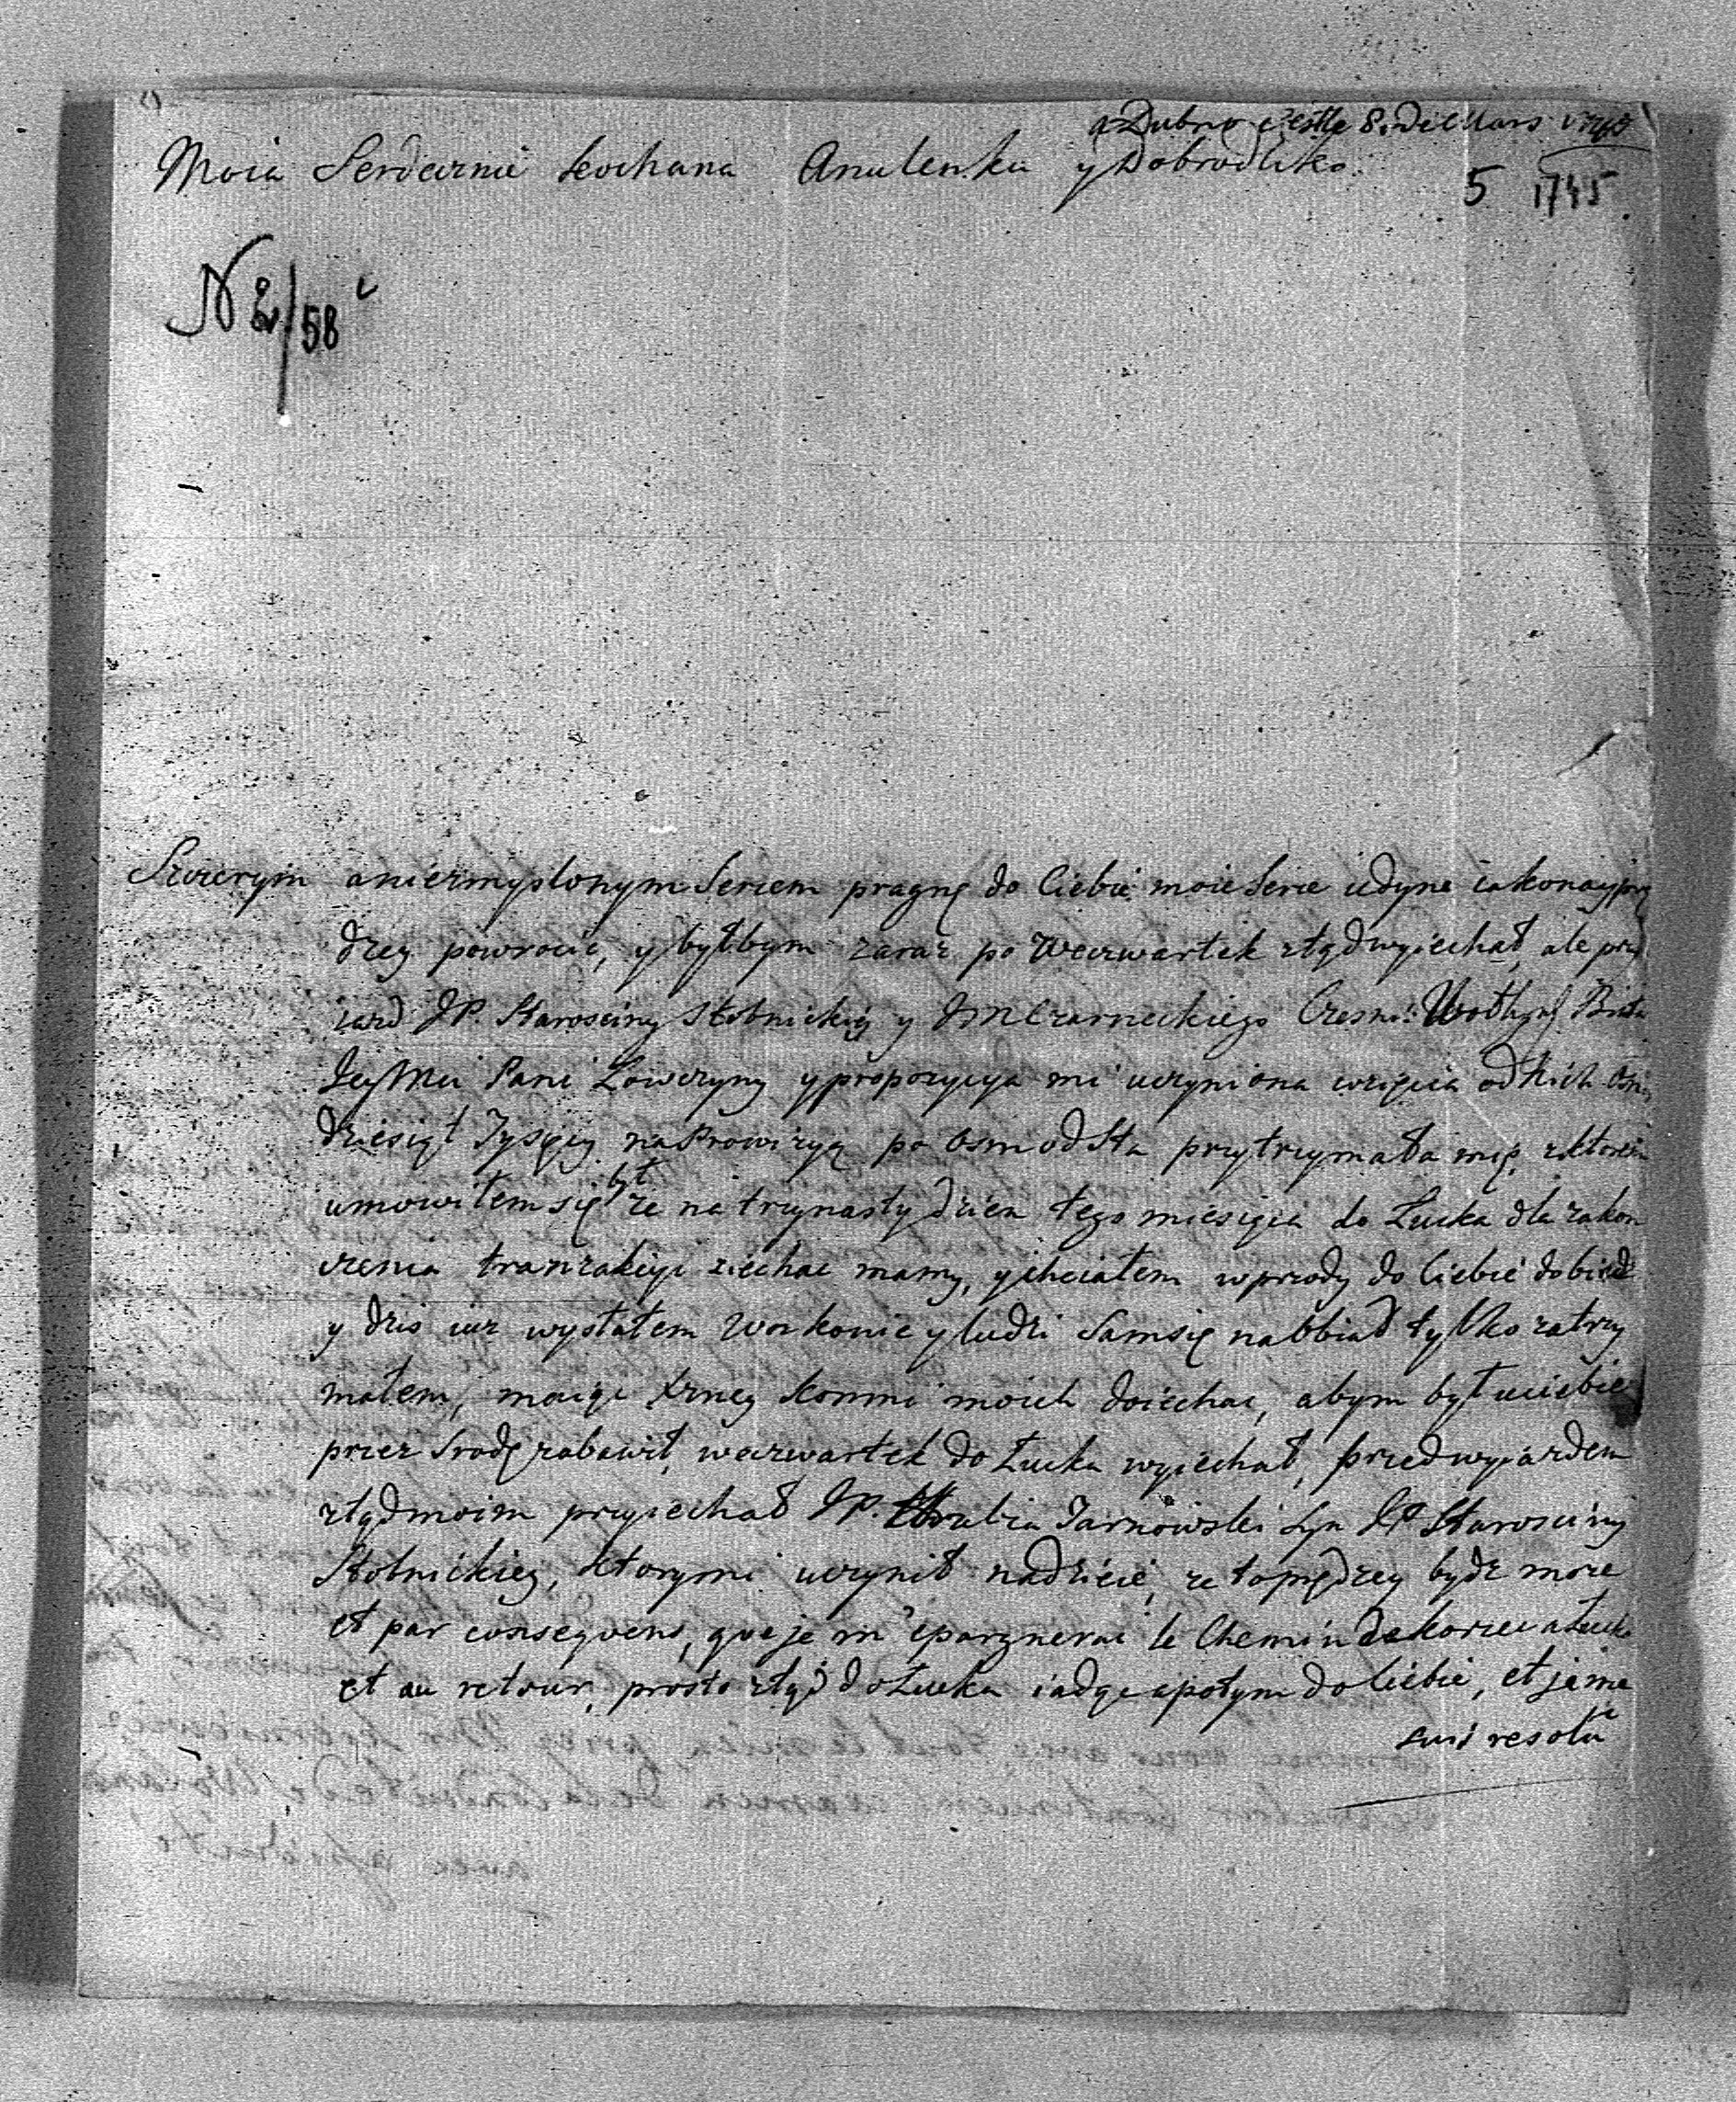 a Dubno cestte 8. de Mars 1745
Moia Serdecznie kochana Anulenku y Dobrodziko
5 1745
N 2/58
Szczerym aniezmyslonym Sercem pragnę do Ciebie moie Serce iedyne iakonayprę
dzey powrocic, y byłbym zaraz po Weczwartek ztąd wyiechał, ale przy
iazd JP. Starosciny Stobnickiey y JM Czarneckiego Czesni: Wołhyn Brata
JeyMci Pani Łowczyny y propozycya mi uczyniona wzięcia od Nich Osm
dziesiąt Tysięcy na Prowizyą po Osm od Sta przytrzymała mię, z ktoremi
umowiłem się był że na trzynasty dzien tego miesiąca do Łucka dla zakon
czenia tranzakcyi ziechac mamy, y chciałem wprzody do Ciebie dobiedz
y dzis iuz wysłałem Wor konie y ludzi Sam się na Obiad tylko zatrzy
małem, maiąc konmi moich doiechac, abym był u ciebie
przez Srodę zabawił, weczwartek do Łucka wyiechał, przed wyiazdem
ztąd moim przyiechał JP. Hrabia Tarnowski Syn JP Starosciny
Stobnickiey, ktory mi uczynił nadzieię, ze to prędzey bydz moze
et par consequens, que je m'epargnerai le Chemin de Korzec a Łucko
et au retour, prosto ztąd do Łucka iadę a potym do Ciebie, et je me
suis resolu